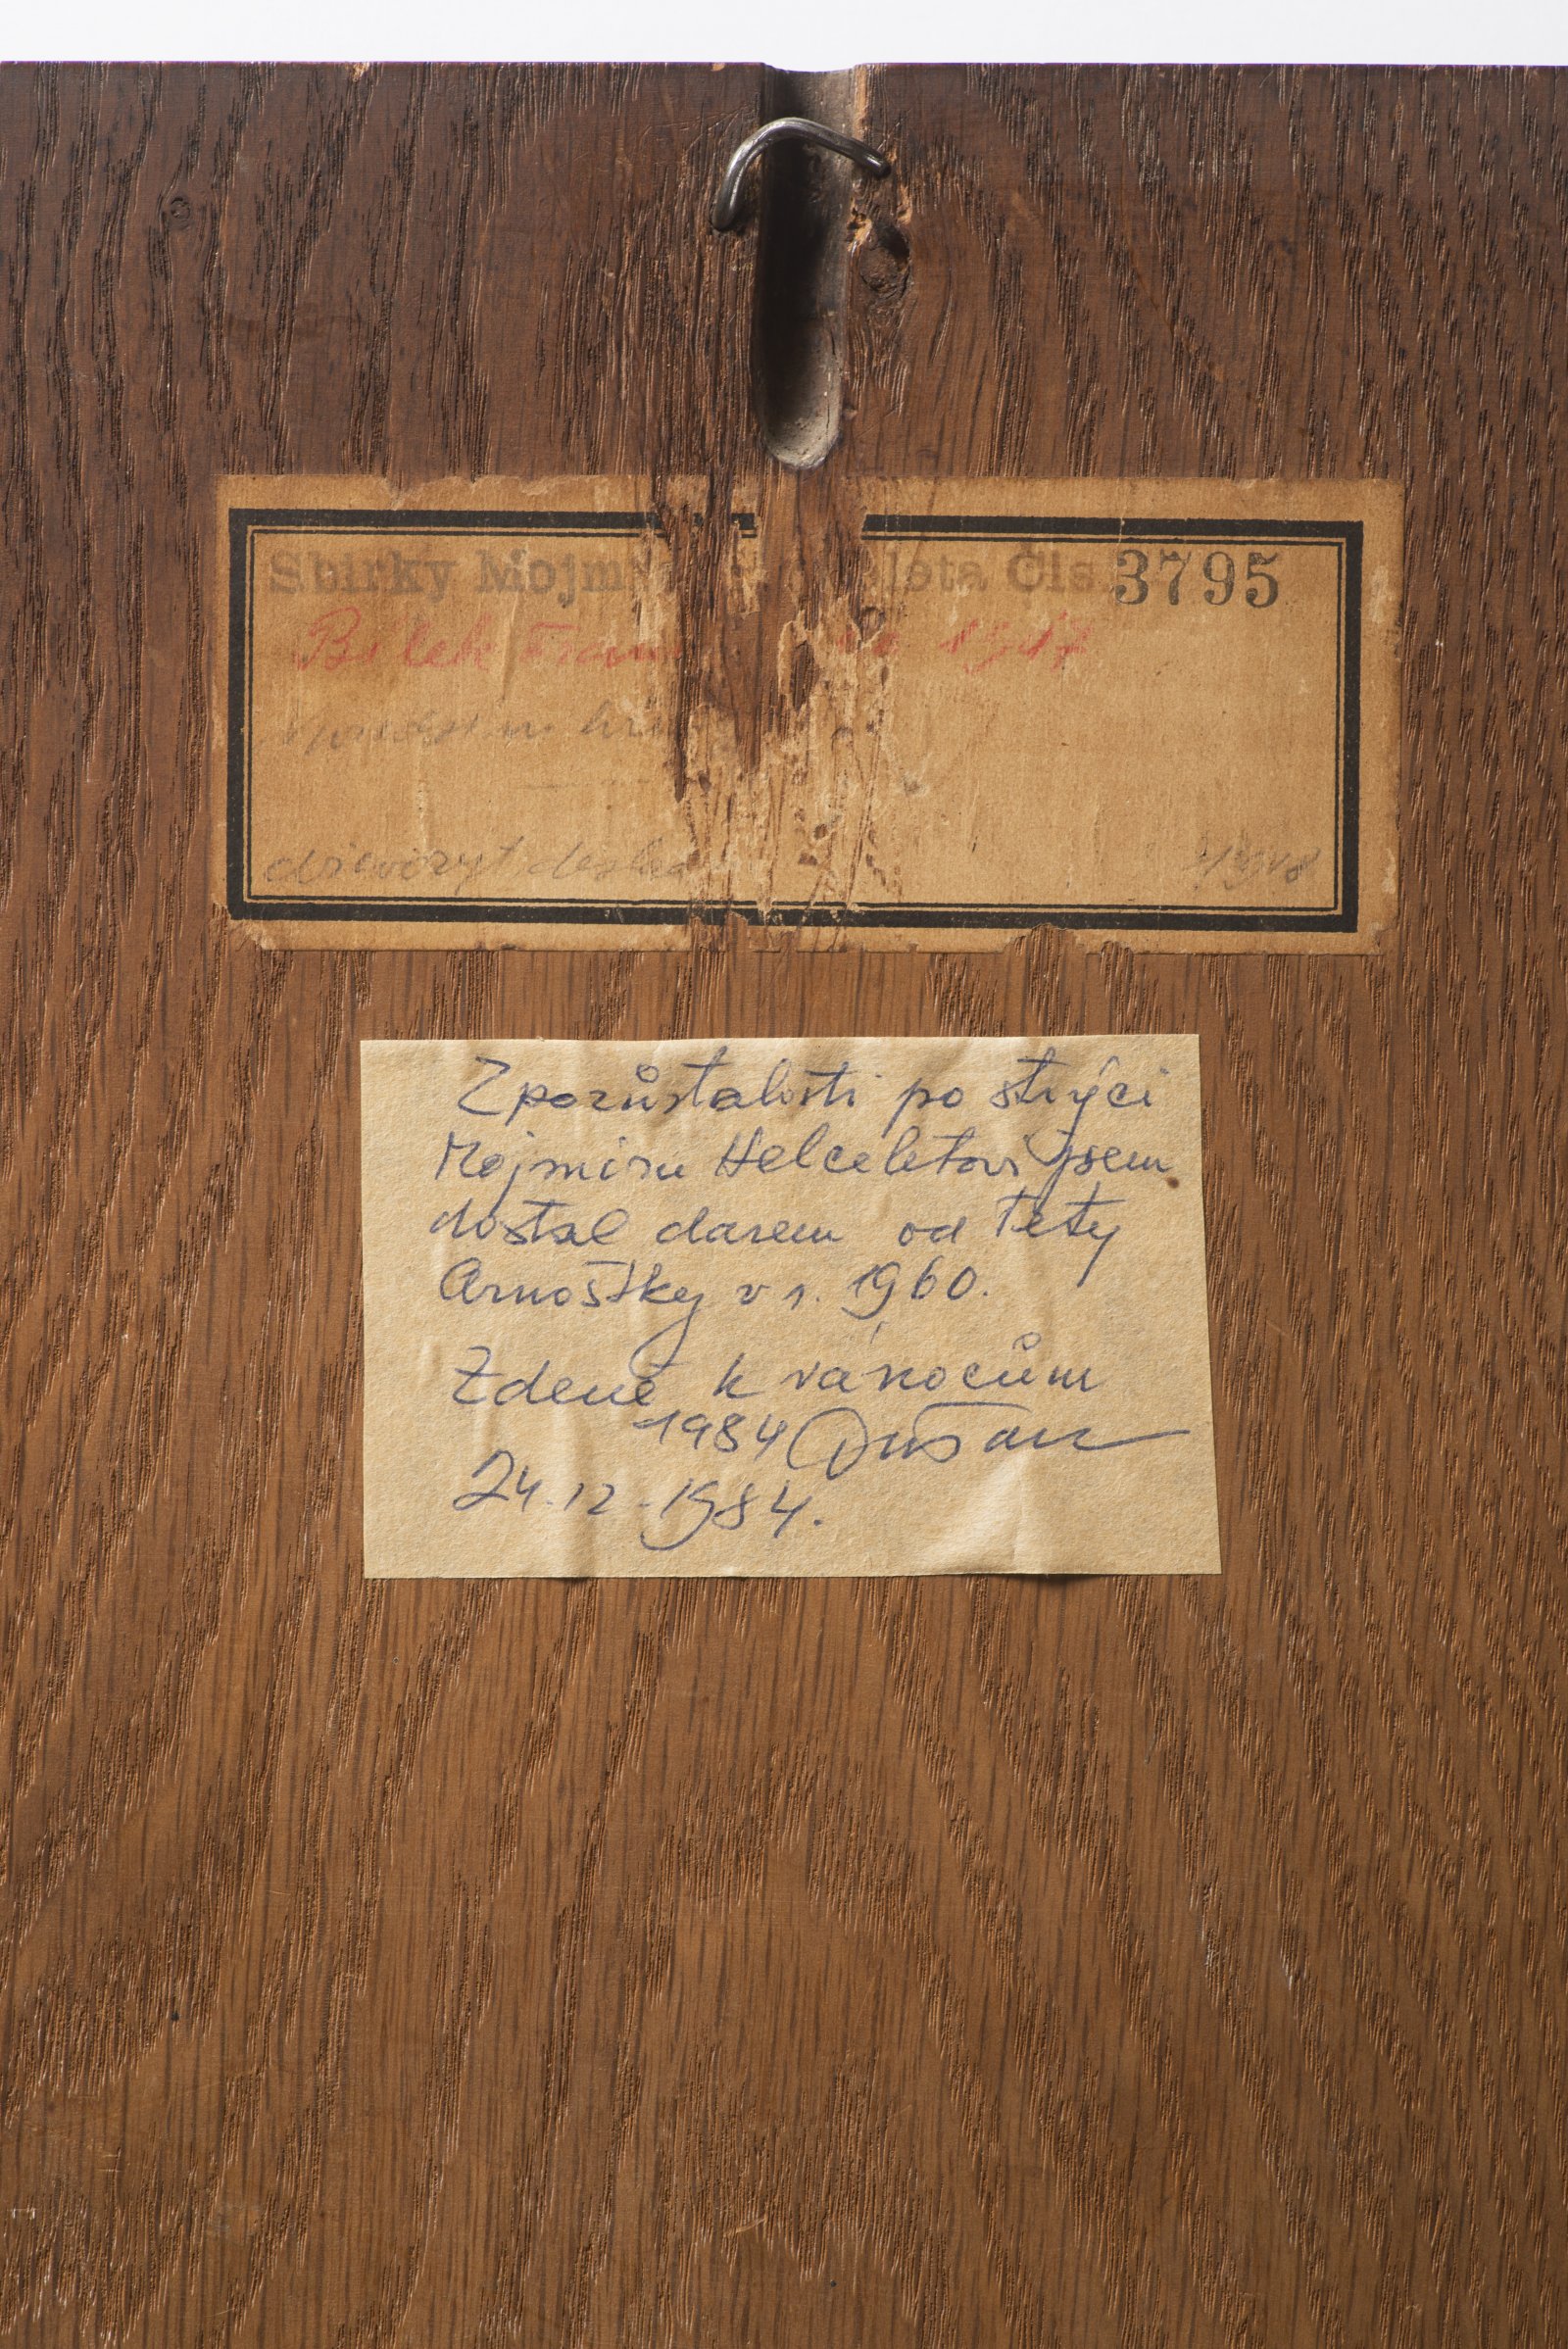 Sbírky Mojm leta Čís 3795
Bílek Fran 1917
dřevoryt deska 1918
Z pozůstalosti po strýci
Mojmíru Helceletovi jsem
dostal darem od tety
Arnoštky v r. 1960.
Zdeně k vánocům
1984 Dušan
24.12.1984.